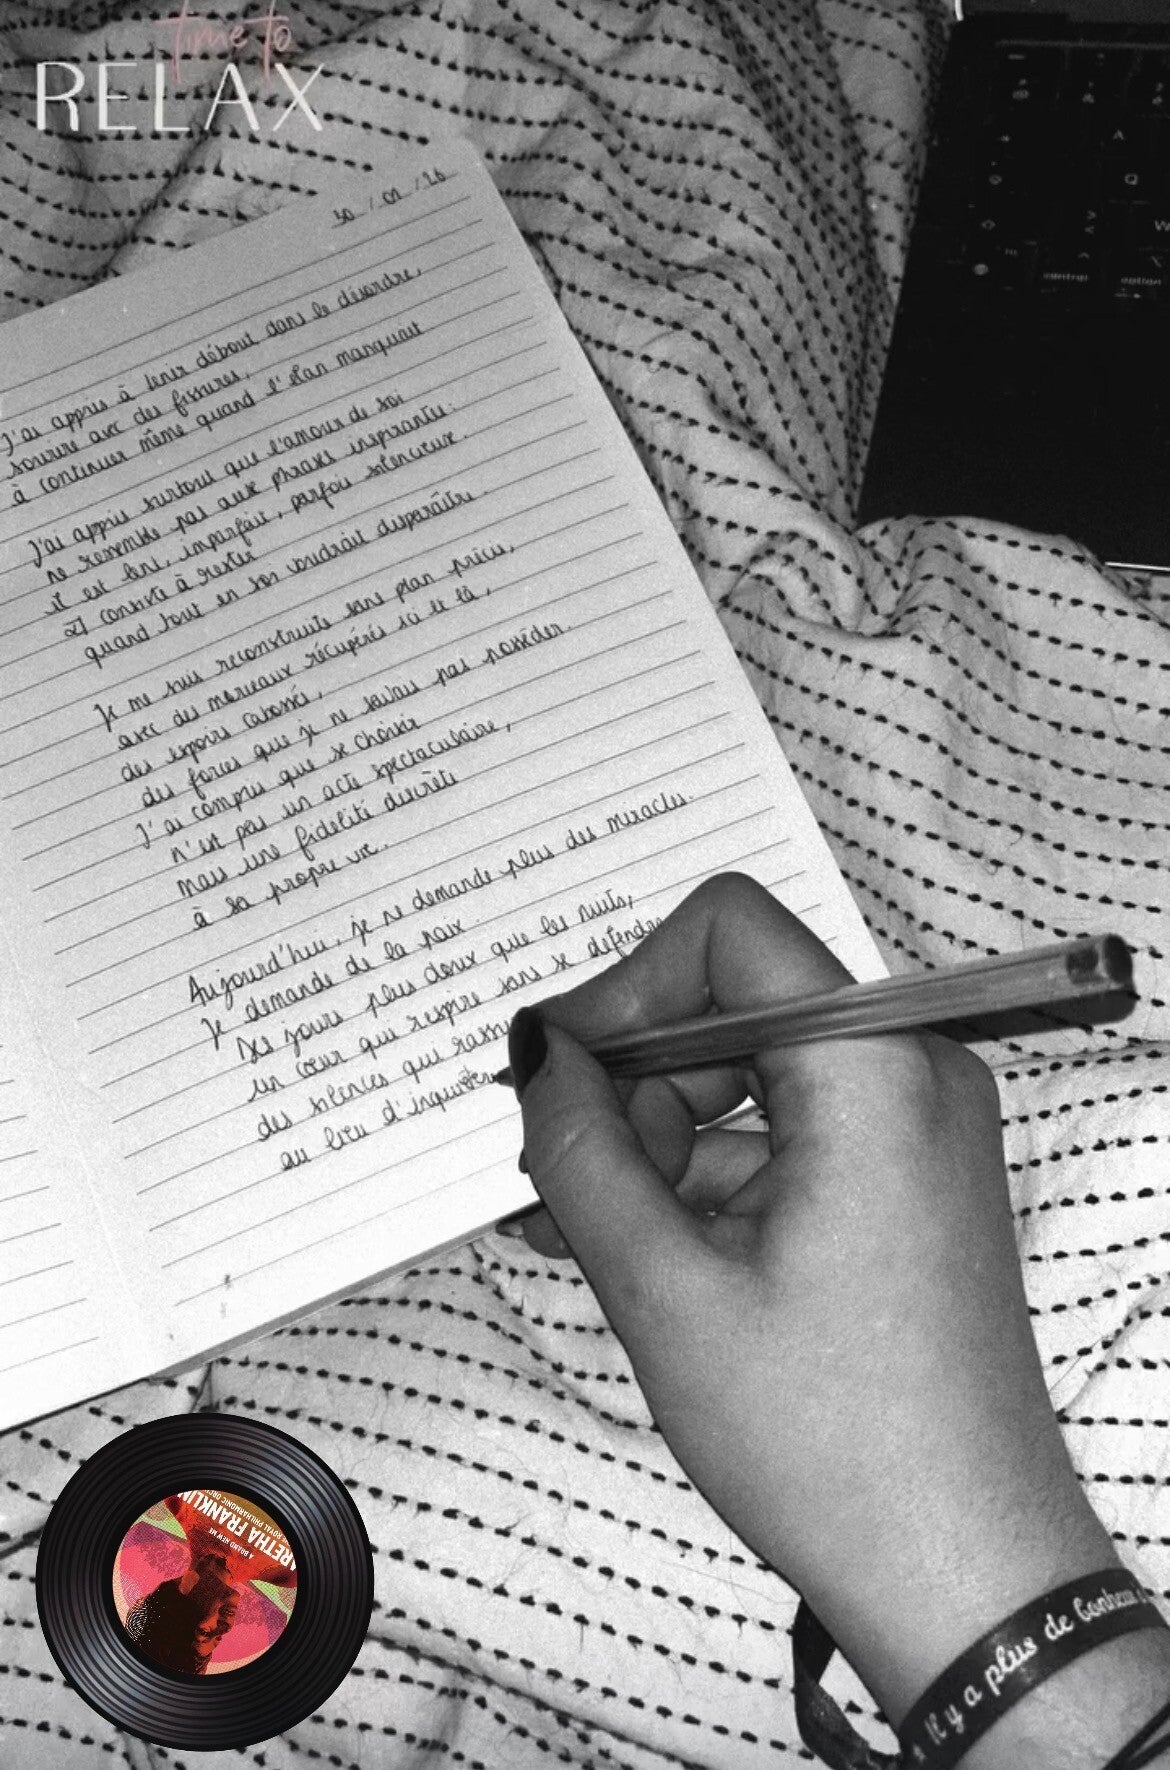 time to
RELAX
30 / 01 / 26
J'ai appris à tenir débout dans le désordre,
sourire avec des fissures,
à continuer même quand l'élan manquait
J'ai appris surtout que l'amour de soi
ne ressemble pas aux phrases inspirantes.
il est lent, imparfait, parfois silencieux.
Il consiste à rester
quand tout en soi voudrait disparaître.
Je me suis reconstruite sans plan précis,
avec des morceaux récupérés ici et là,
des espoirs cabossés,
des forces que je ne savais pas posséder.
J'ai compris que se choisir
n'est pas un acte spectaculaire,
mais une fidélité discrète
à sa propre vie.
Aujourd'hui, je ne demande plus des miracles.
Je demande de la paix.
Des jours plus doux que les nuits,
un cœur qui respire sans se défendre
des silences qui
au lieu d'inquiéter
control
option
A
Q
W
ARETHA FRANKLIN
THE ROYAL PHILHARMONIC
A BRAND NEW ME
Il y a plus de bonheur à